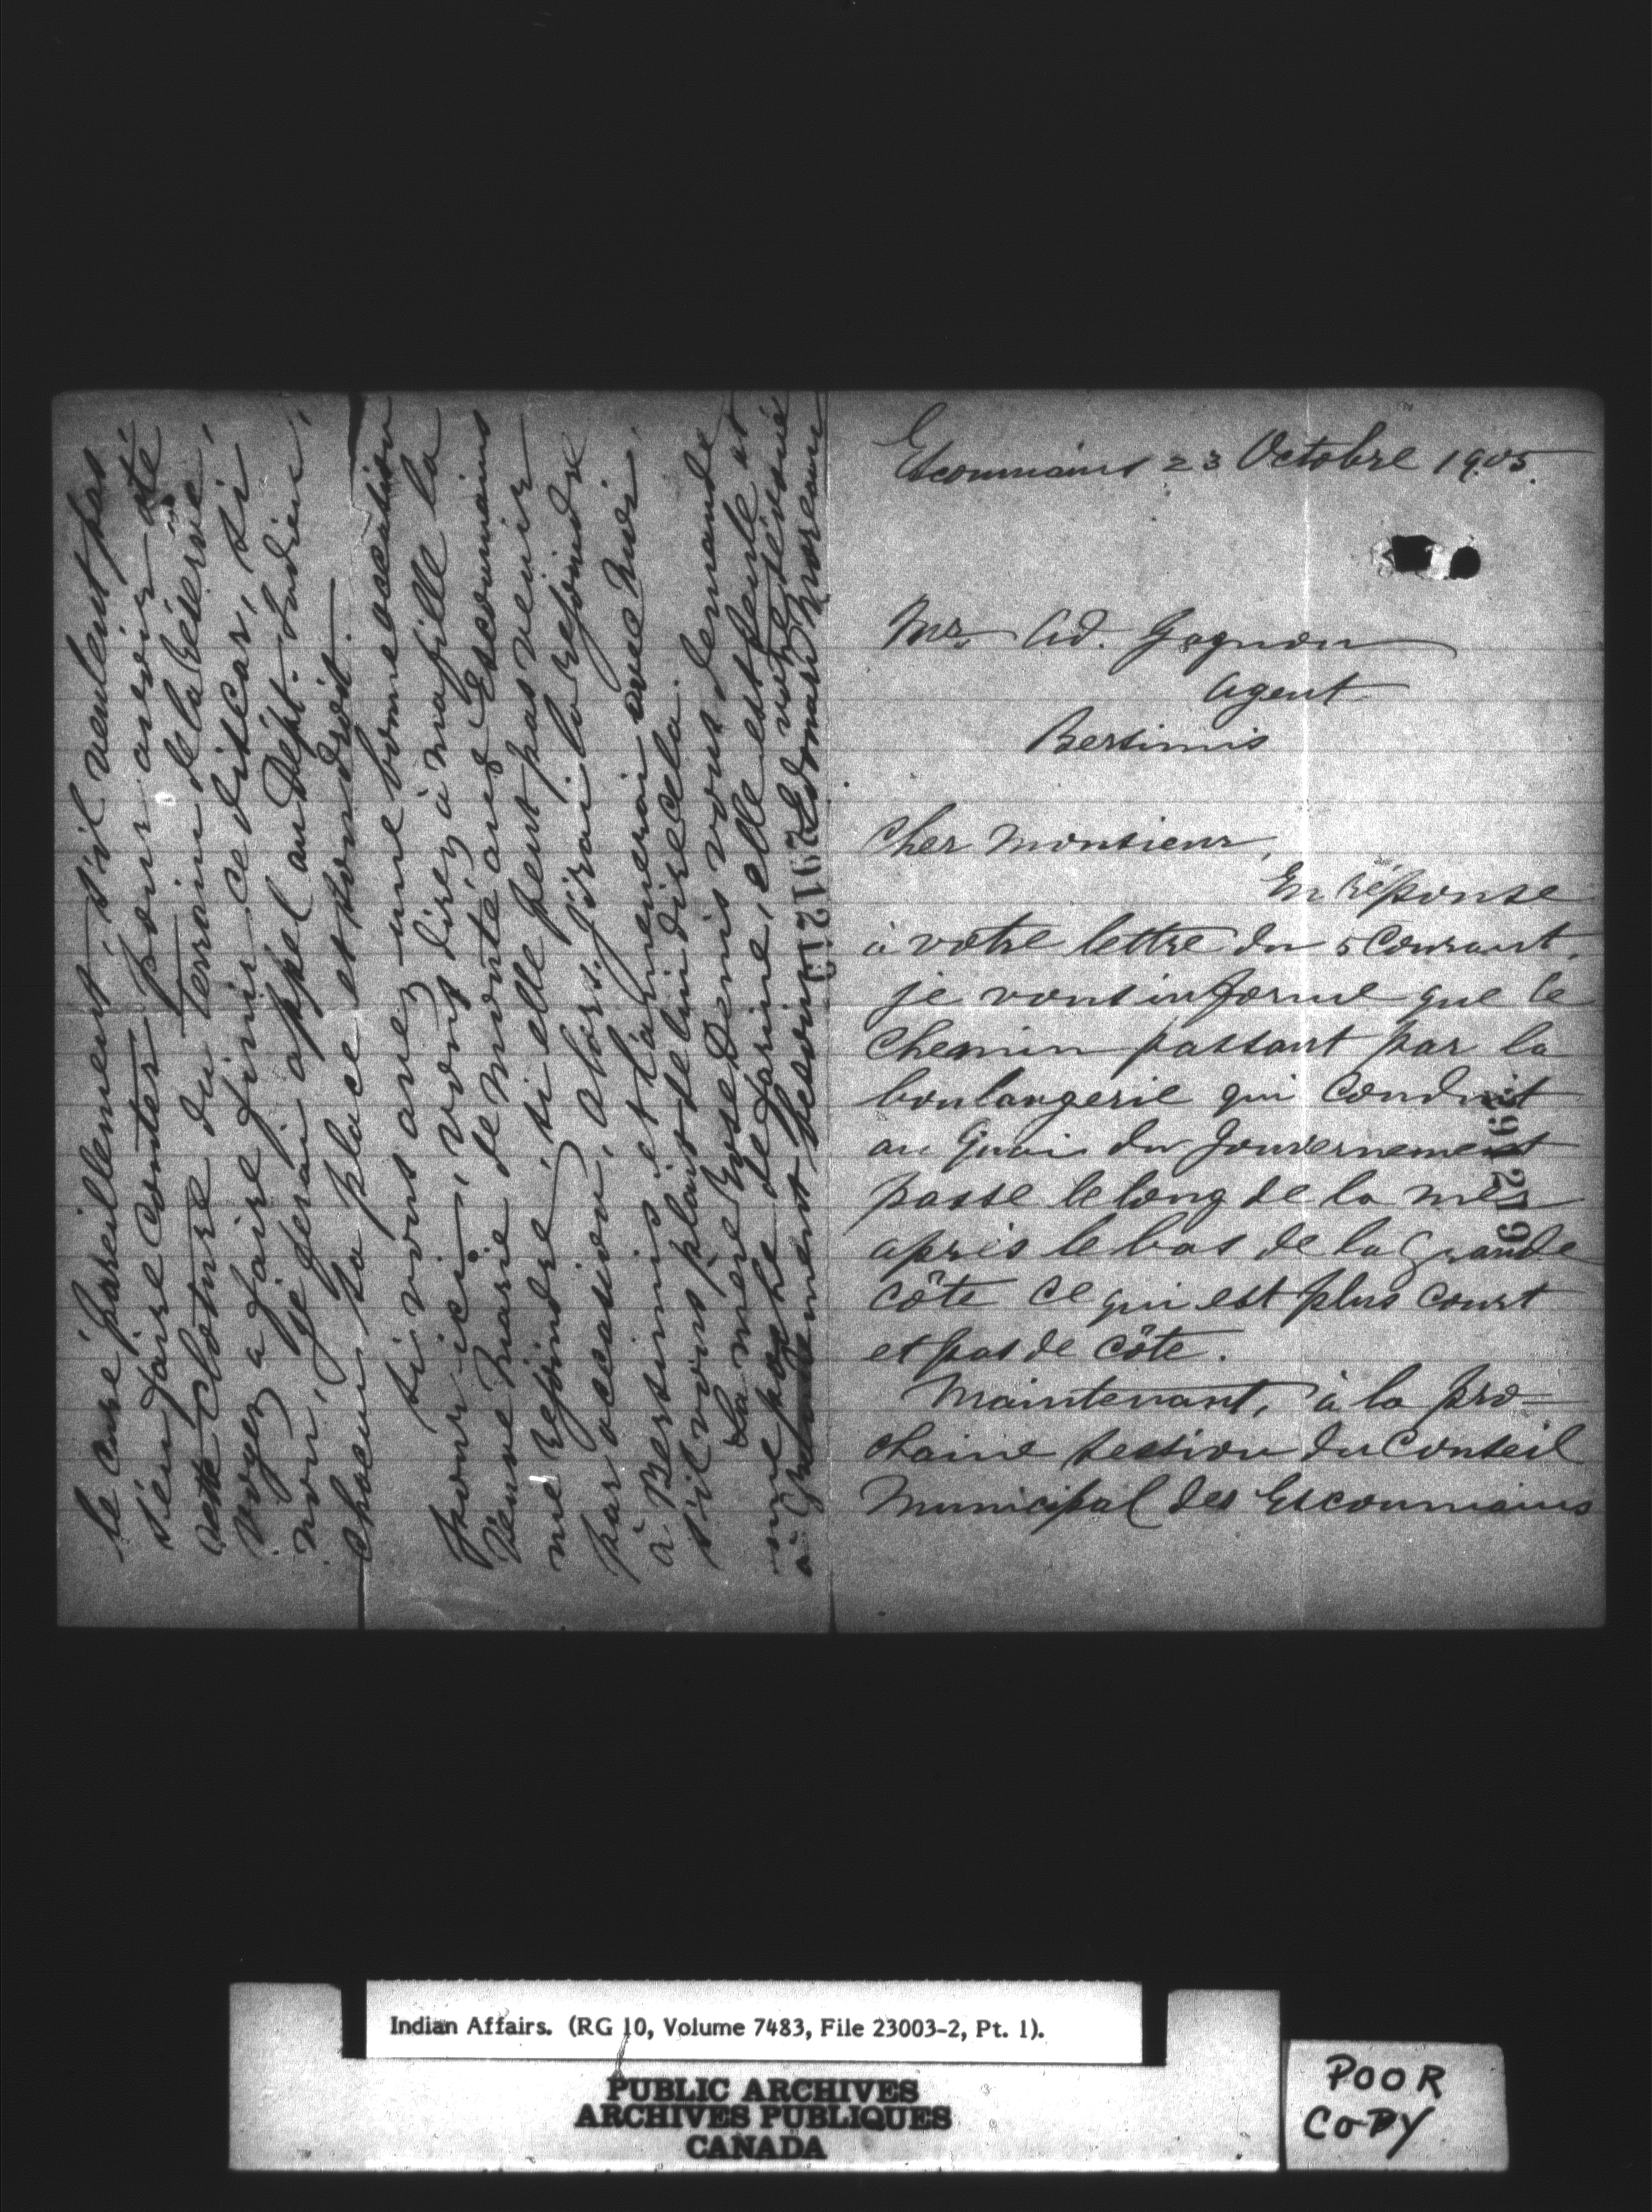 Escoumains 23 Octobre 1905.
Mr. Ad. Gagnon
Agent
Bersimis
Cher Monsieur,
En réponse
à votre lettre du 5 Courant,
je vous informe que le
Chemin passant par la
boulangerie qui Conduit
au Quai du Gouvernement
passe le long de la mer
après le bas de la Grande
Côte ce qui est plus Court
et pas de Côte.
Maintenant, à la pro=
chaine session du Conseil
Municipal des Escoumains
le curé pareillement s'il veulent pas
s'en faire Conter pour avoir ôté
Clôture du Terrain de la Réserve,
Voyez a faire finir ce discar, si
non, je ferai appel au Dépt. Indien,
Chacun sa place et son droit.
Si vous avez une bonne occasion
pour ici, vous direz à ma fille la
Veuve Marie de monté aux Escoumains
me rejoindre, si elle peut pas venir
par occasion, alors j'irai la rejoindre
à Bersimis et l'amenerai avec moi
s'il vous plait de lui dire cela.
La mère Rose Denis vous demande
une poche de farine, elle est seule et
votre dévoué
Moreau
291279
291279
Indian Affairs. (RG 10, Volume 7483, File 23003-2, Pt. 1).
PUBLIC ARCHIVES
ARCHIVES PUBLIQUES
CANADA
POOR
COPY